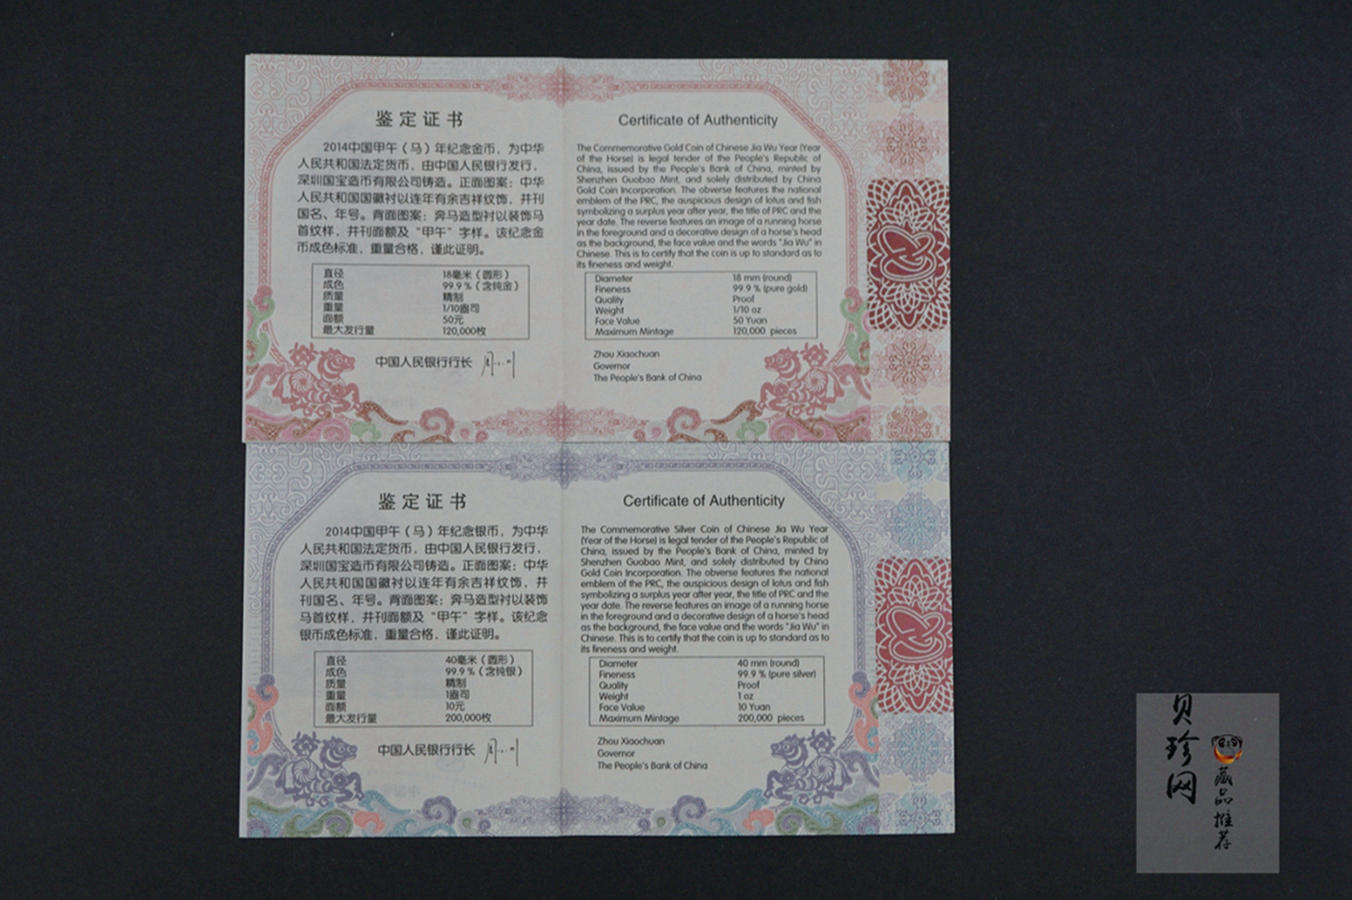 鉴定证书
2014中国甲午（马）年纪念金币，为中华
人民共和国法定货币，由中国人民银行发行，
深圳国宝造币有限公司铸造。正面图案：中华
人民共和国国徽衬以连年有余吉祥纹饰，并刊
国名、年号。背面图案：奔马造型衬以装饰马
首纹样，并刊面额及“甲午”字样。该纪念金
币成色标准，重量合格，谨此证明。
直径 18毫米（圆形）
成色 99.9％（含纯金）
质量 精制
重量 1/10盎司
面额 50元
最大发行量 120,000枚
中国人民银行行长
Certificate of Authenticity
The Commemorative Gold Coin of Chinese Jia Wu Year (Year
of the Horse) is legal tender of the People's Republic of
China, issued by the People's Bank of China, minted by
Shenzhen Guobao Mint, and solely distributed by China
Gold Coin Incorporation. The obverse features the national
emblem of the PRC, the auspicious design of lotus and fish
symbolizing a surplus year after year, the title of PRC and the
year date. The reverse features an image of a running horse
in the foreground and a decorative design of a horse's head
as the background, the face value and the words "Jia Wu" in
Chinese. This is to certify that the coin is up to standard as to
its fineness and weight.
Diameter 18 mm (round)
Fineness 99.9 % (pure gold)
Quality Proof
Weight 1/10 oz
Face Value 50 Yuan
Maximum Mintage 120,000 pieces
Zhou Xiaochuan
Governor
The People's Bank of China
鉴定证书
2014中国甲午（马）年纪念银币，为中华
人民共和国法定货币，由中国人民银行发行，
深圳国宝造币有限公司铸造。正面图案：中华
人民共和国国徽衬以连年有余吉祥纹饰，并
刊国名、年号。背面图案：奔马造型衬以装饰
马首纹样，并刊面额及“甲午”字样。该纪念
银币成色标准，重量合格，谨此证明。
直径 40毫米（圆形）
成色 99.9％（含纯银）
质量 精制
重量 1盎司
面额 10元
最大发行量 200,000枚
中国人民银行行长
Certificate of Authenticity
The Commemorative Silver Coin of Chinese Jia Wu Year
(Year of the Horse) is legal tender of the People's Republic of
China, issued by the People's Bank of China, minted by
Shenzhen Guobao Mint, and solely distributed by China
Gold Coin Incorporation. The obverse features the national
emblem of the PRC, the auspicious design of lotus and fish
symbolizing a surplus year after year, the title of PRC and the
year date. The reverse features an image of a running horse
in the foreground and a decorative design of a horse's head
as the background, the face value and the words "Jia Wu" in
Chinese. This is to certify that the coin is up to standard as to
its fineness and weight.
Diameter 40 mm (round)
Fineness 99.9 % (pure silver)
Quality Proof
Weight 1 oz
Face Value 10 Yuan
Maximum Mintage 200,000 pieces
Zhou Xiaochuan
Governor
The People's Bank of China
贝珍网
藏品推荐